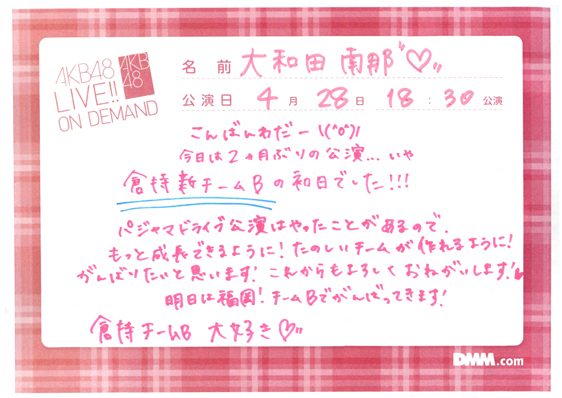 AKB48
LIVE!!
ON DEMAND
AKB
48
名前 大和田南那"♡"
公演日 4月28日 18:30公演
こんばんわだー \(^o^)/
今日は2ヵ月ぶりの公演…いや
倉持新チームBの初日でした!!!
パジャマドライブ公演はやったことがあるので、
もっと成長できるように!たのしいチームが作れるように!
がんばりたいと思います!これからもよろしくおねがいします!♥
明日は福岡!チームBでがんばってきます!
倉持チームB 大好き♡
DMM.com